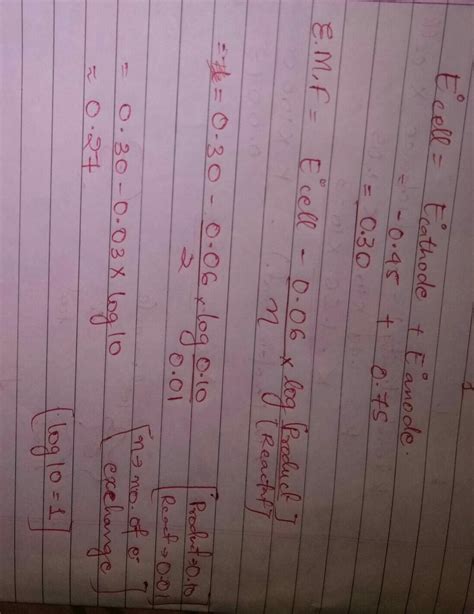 E°cell = E°cathode + E°anode.
= -0.45 + 0.75
= 0.30
E.M.F = E°cell - 0.06/n × log [Product]/[Reactant]
= 0.30 - 0.06/2 × log 0.10/0.01
[Product → 0.10
React → 0.01]
= 0.30 - 0.03 × log 10
[n → no. of e⁻
exchange]
= 0.27
[log 10 = 1]